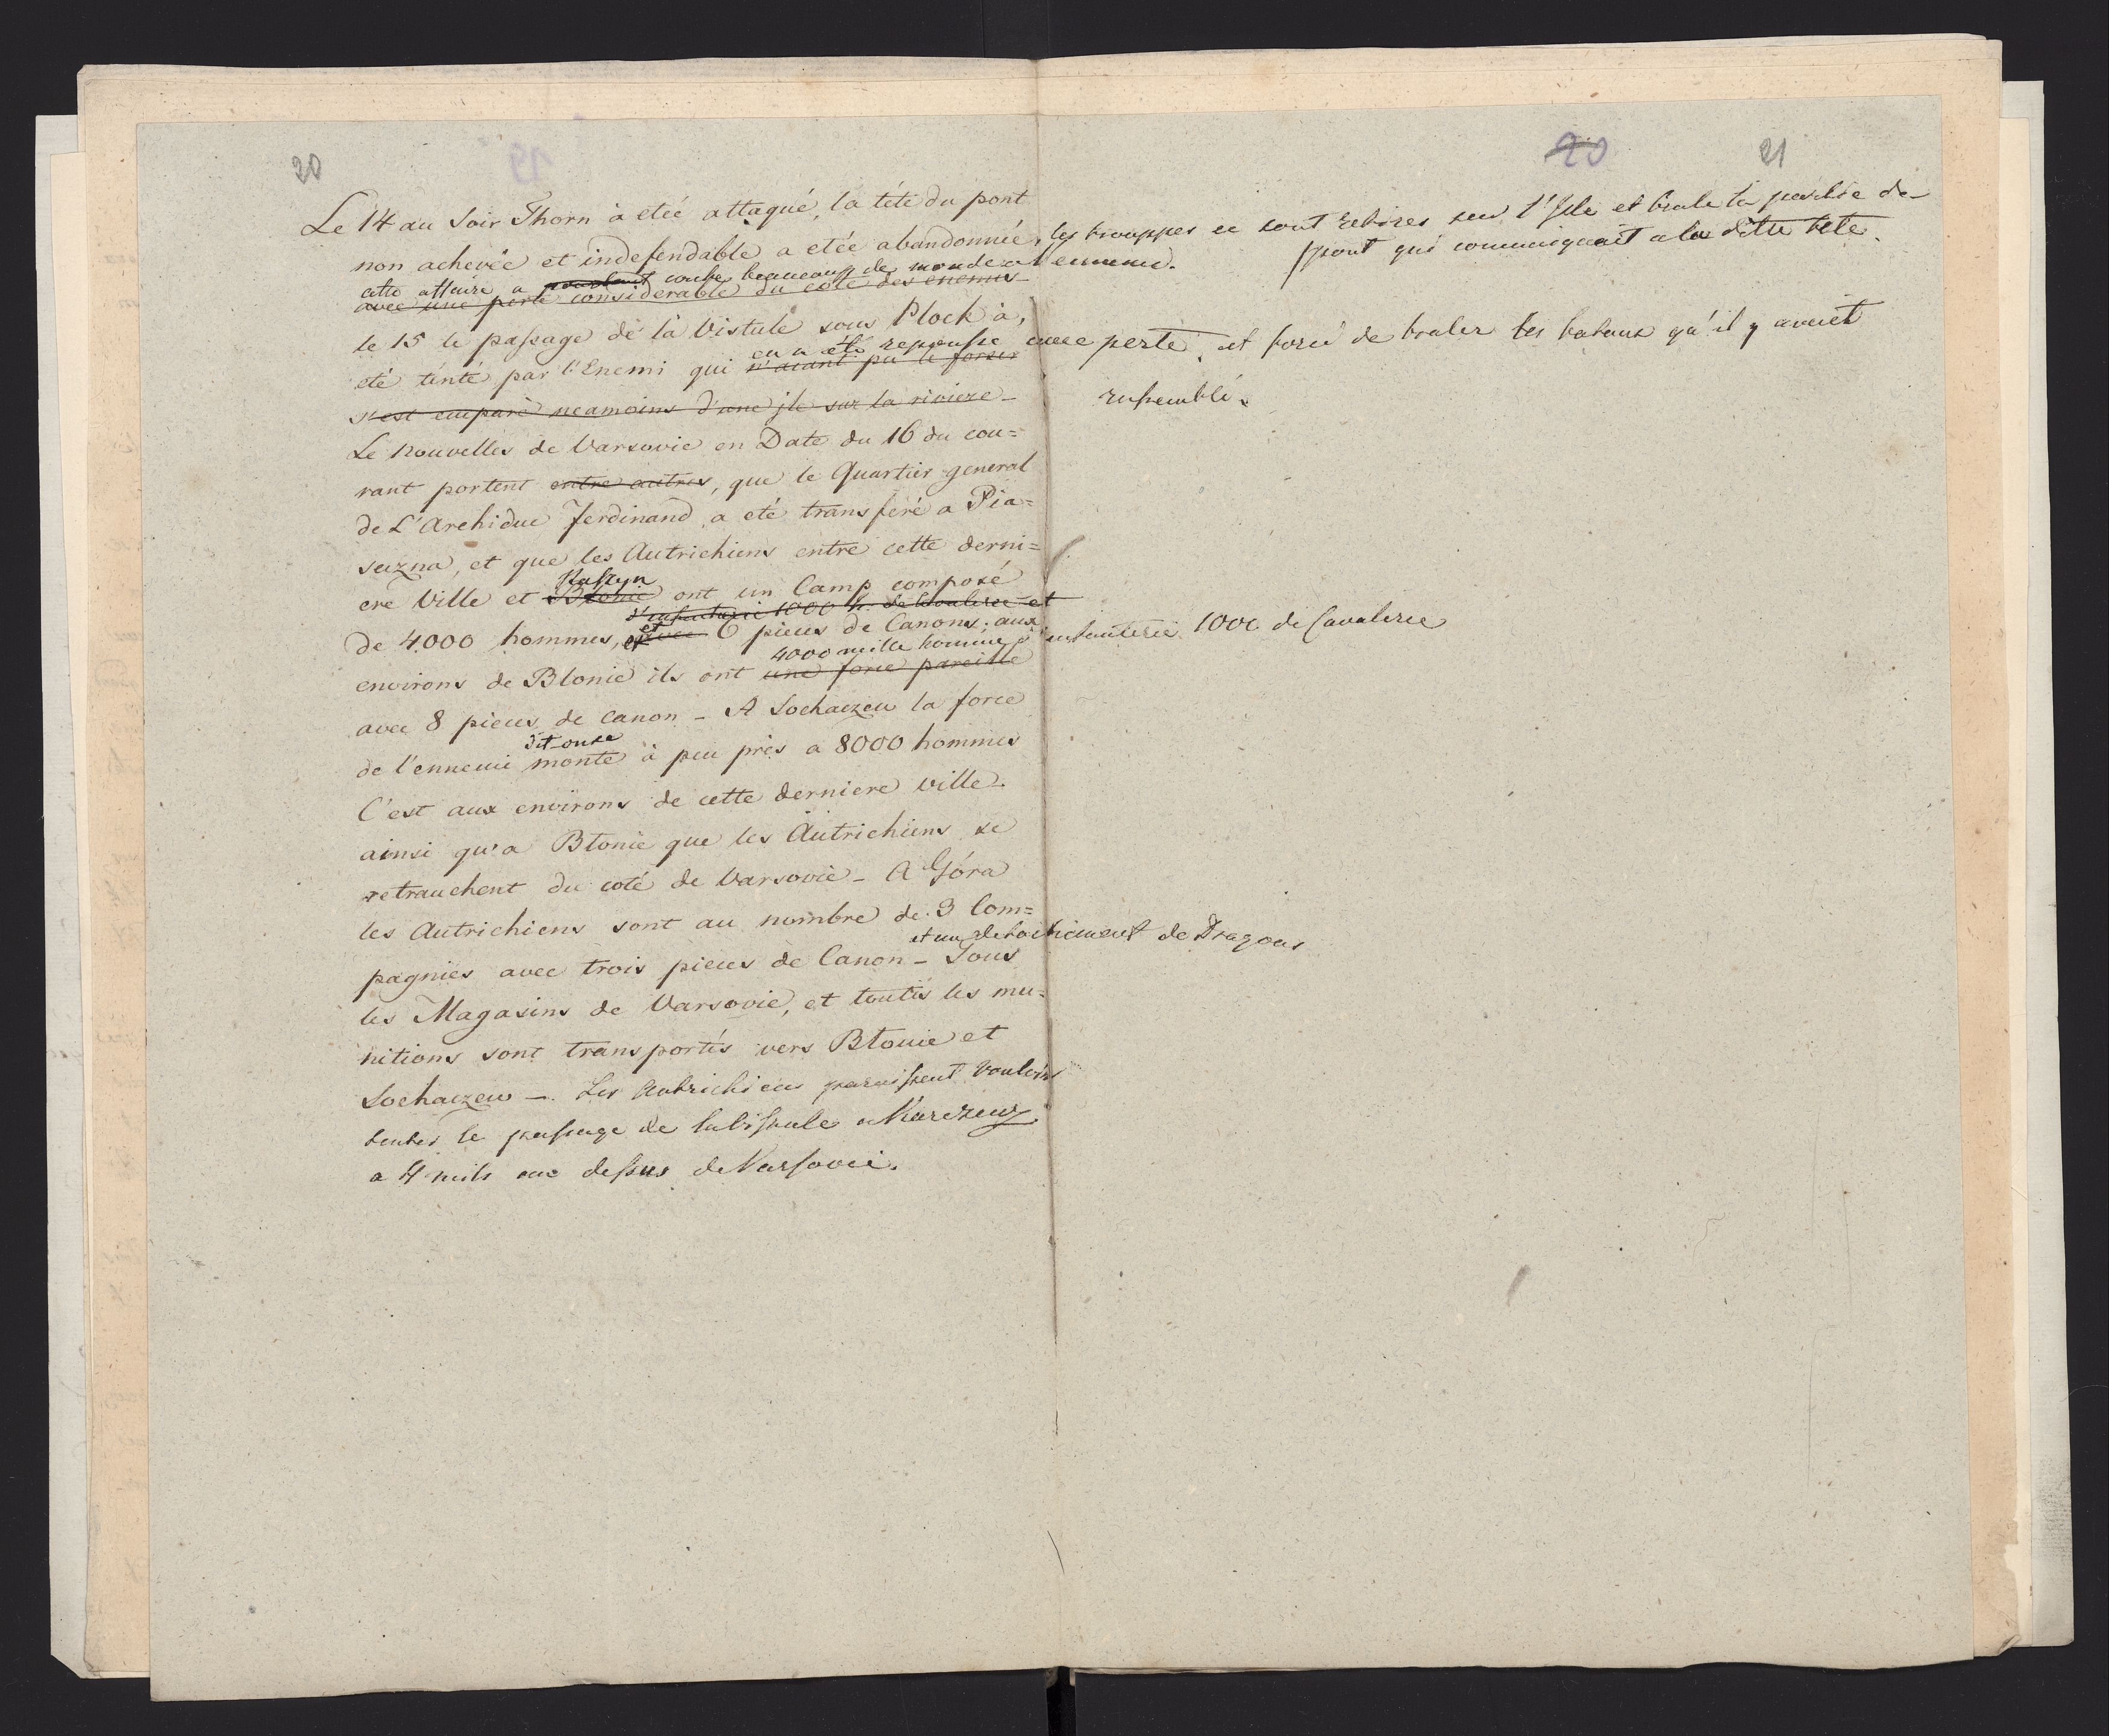 20
20
21
Le 14 au Soir Thorn à etée attaqué, la tête du pont
non achevée et indefendable a etée abandonnée, les trouppes se sont retirés sur l'Isle et brulé la partie de
pont qui communiquait a la ditte tete.
cette affaire a pourtant couté beaucoup de monde a l'ennemi.
avec une perte considerable du coté des enemis
le 15 le passage de la Vistule sous Plock à,
en a eté repoussé avec perte, et forcé de bruler les bateaux qu'il y avait
eté tenté par l'Enemi qui n'aiant pu le forcer
rassemblé.
s'est emparé neamoins d'une jle sur la riviere
Le Nouvelles de Varsovie en Date du 16 du cou=
rant portent entre autres, que le Quartier general
de L'Archiduc Ferdinand a eté transferé a Pia=
seczna, et que les Autrichiens entre cette derni=
Raszyn
ere Ville et Blonie ont un Camp composé
d'infanterie 1000 h. de Cavalerie et
de 4000 hommes, et avec 6 pieces de Canons; aux
4000 mille homme d'infanterie 1000 de Cavalerie
environs de Blonie ils ont une force pareille
avec 8 pieces de canon - A Sochaczew la force
dit-on se
de l'ennemi monte à peu près a 8000 hommes
C'est aux environs de cette derniere ville
ainsi qu'a Blonie que les Autrichiens se
retranchent du coté de Varsovie - A Góra
les Autrichiens sont au nombre de 3 Com=
et un detachement de Dragons
pagnies avec trois pieces de Canon - Tous
les Magasins de Varsovie, et toutes les mu=
nitions sont transportés vers Blonie et
Sochaczew -. Les Autrichiens paraissent vouloir
tenter le passage de la Vistule a Karczew
a 4 mils au dessus de Varsovie.